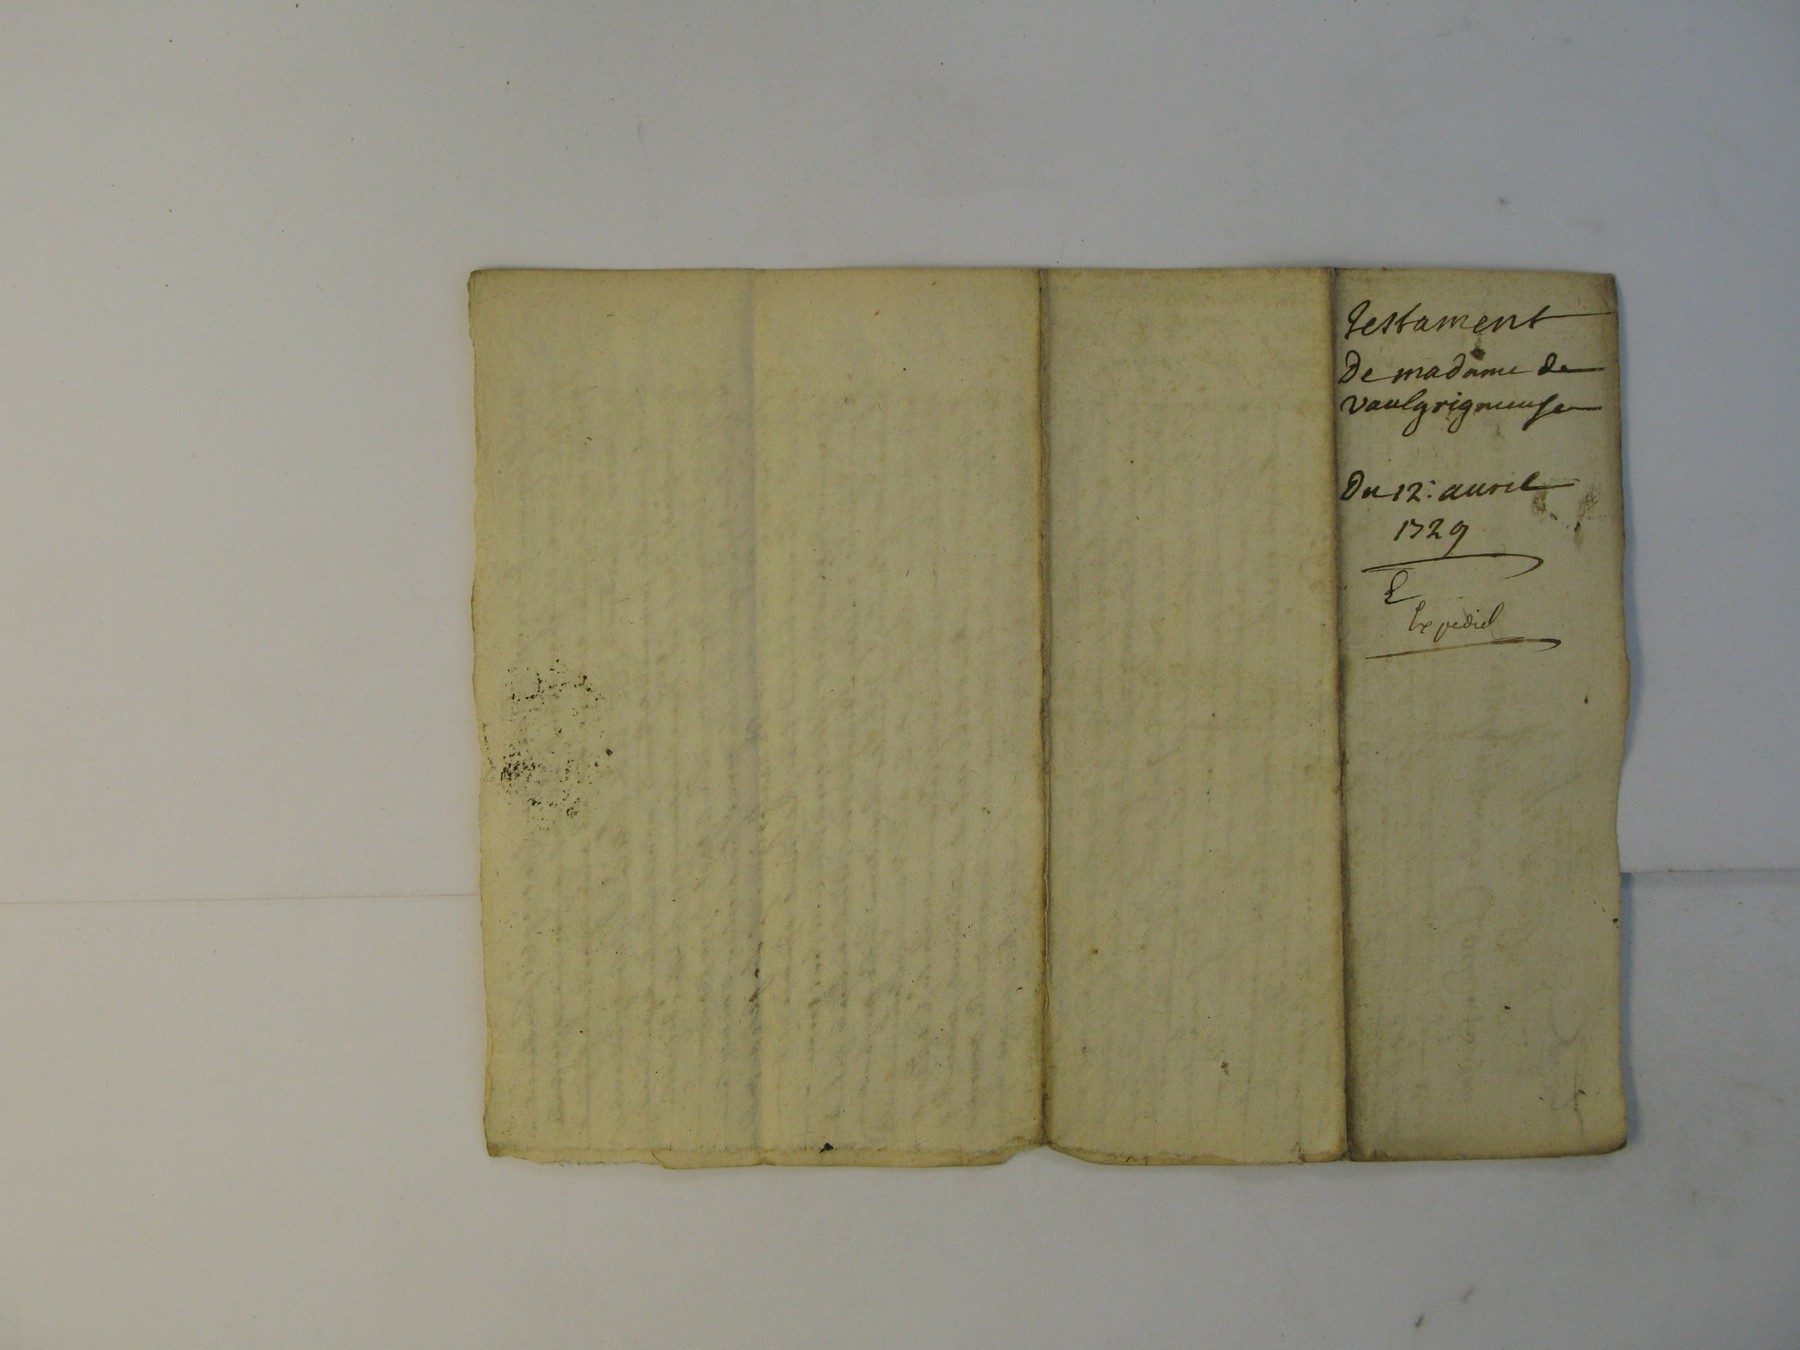 Testament
De madame de
vaulgrigneuse
Du 12: auril
1729
E
Expedié